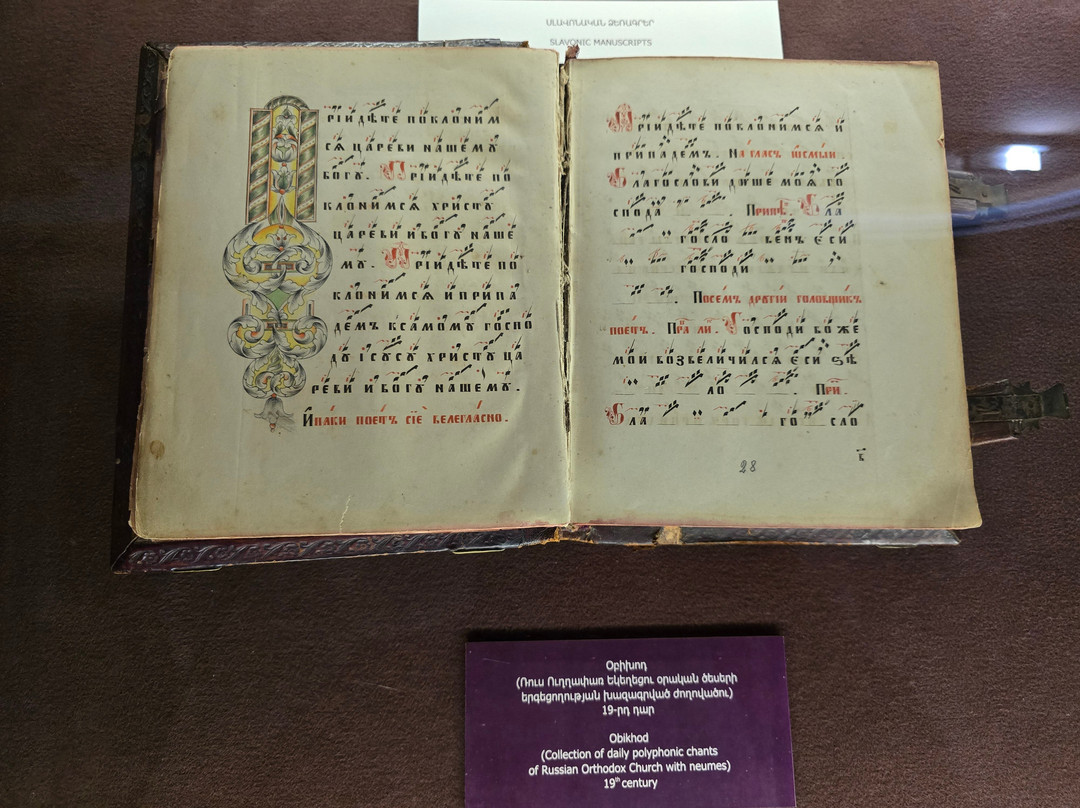 ՍԼԱՎՈՆԱԿԱՆ ՁԵՌԱԳՐԵՐ
SLAVONIC MANUSCRIPTS
Прїидѣте поклоним
сѧ цареви нашемꙋ
богꙋ. Прїидѣте по
клонимсѧ христꙋ
цареви и богꙋ наше
мꙋ. Прїидѣте по
клонимсѧ и припа
демъ к самомꙋ госпо
дꙋ ісꙋсꙋ христꙋ ца
реви и богꙋ нашемꙋ.
И паки поетъ сїе велегласно.
Прїидѣте поклонимсѧ и
припадемъ. На гласъ
Благослови дꙋше моѧ го
спода. Бла
госло венъ еси
господи
. Посемъ дрꙋгїи головщикъ
поетъ. Господи боже
мои возвеличилсѧ еси ѕѣ
ло
Бла го сло
28
Օբիխոդ
(Ռուս Ուղղափառ Եկեղեցու օրական ծեսերի
երգեցողության խազագրված ժողովածու)
19-րդ դար
Obikhod
(Collection of daily polyphonic chants
of Russian Orthodox Church with neumes)
19th century